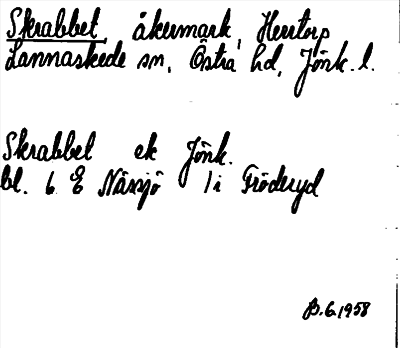 Skrabbet, åkermark, Herrtorp
Lannaskede sn, Östra hd, Jönk. l.
Skrabbel ek Jönk.
bl. 6 E Nässjö 1 i Fröderyd
B.6.1958